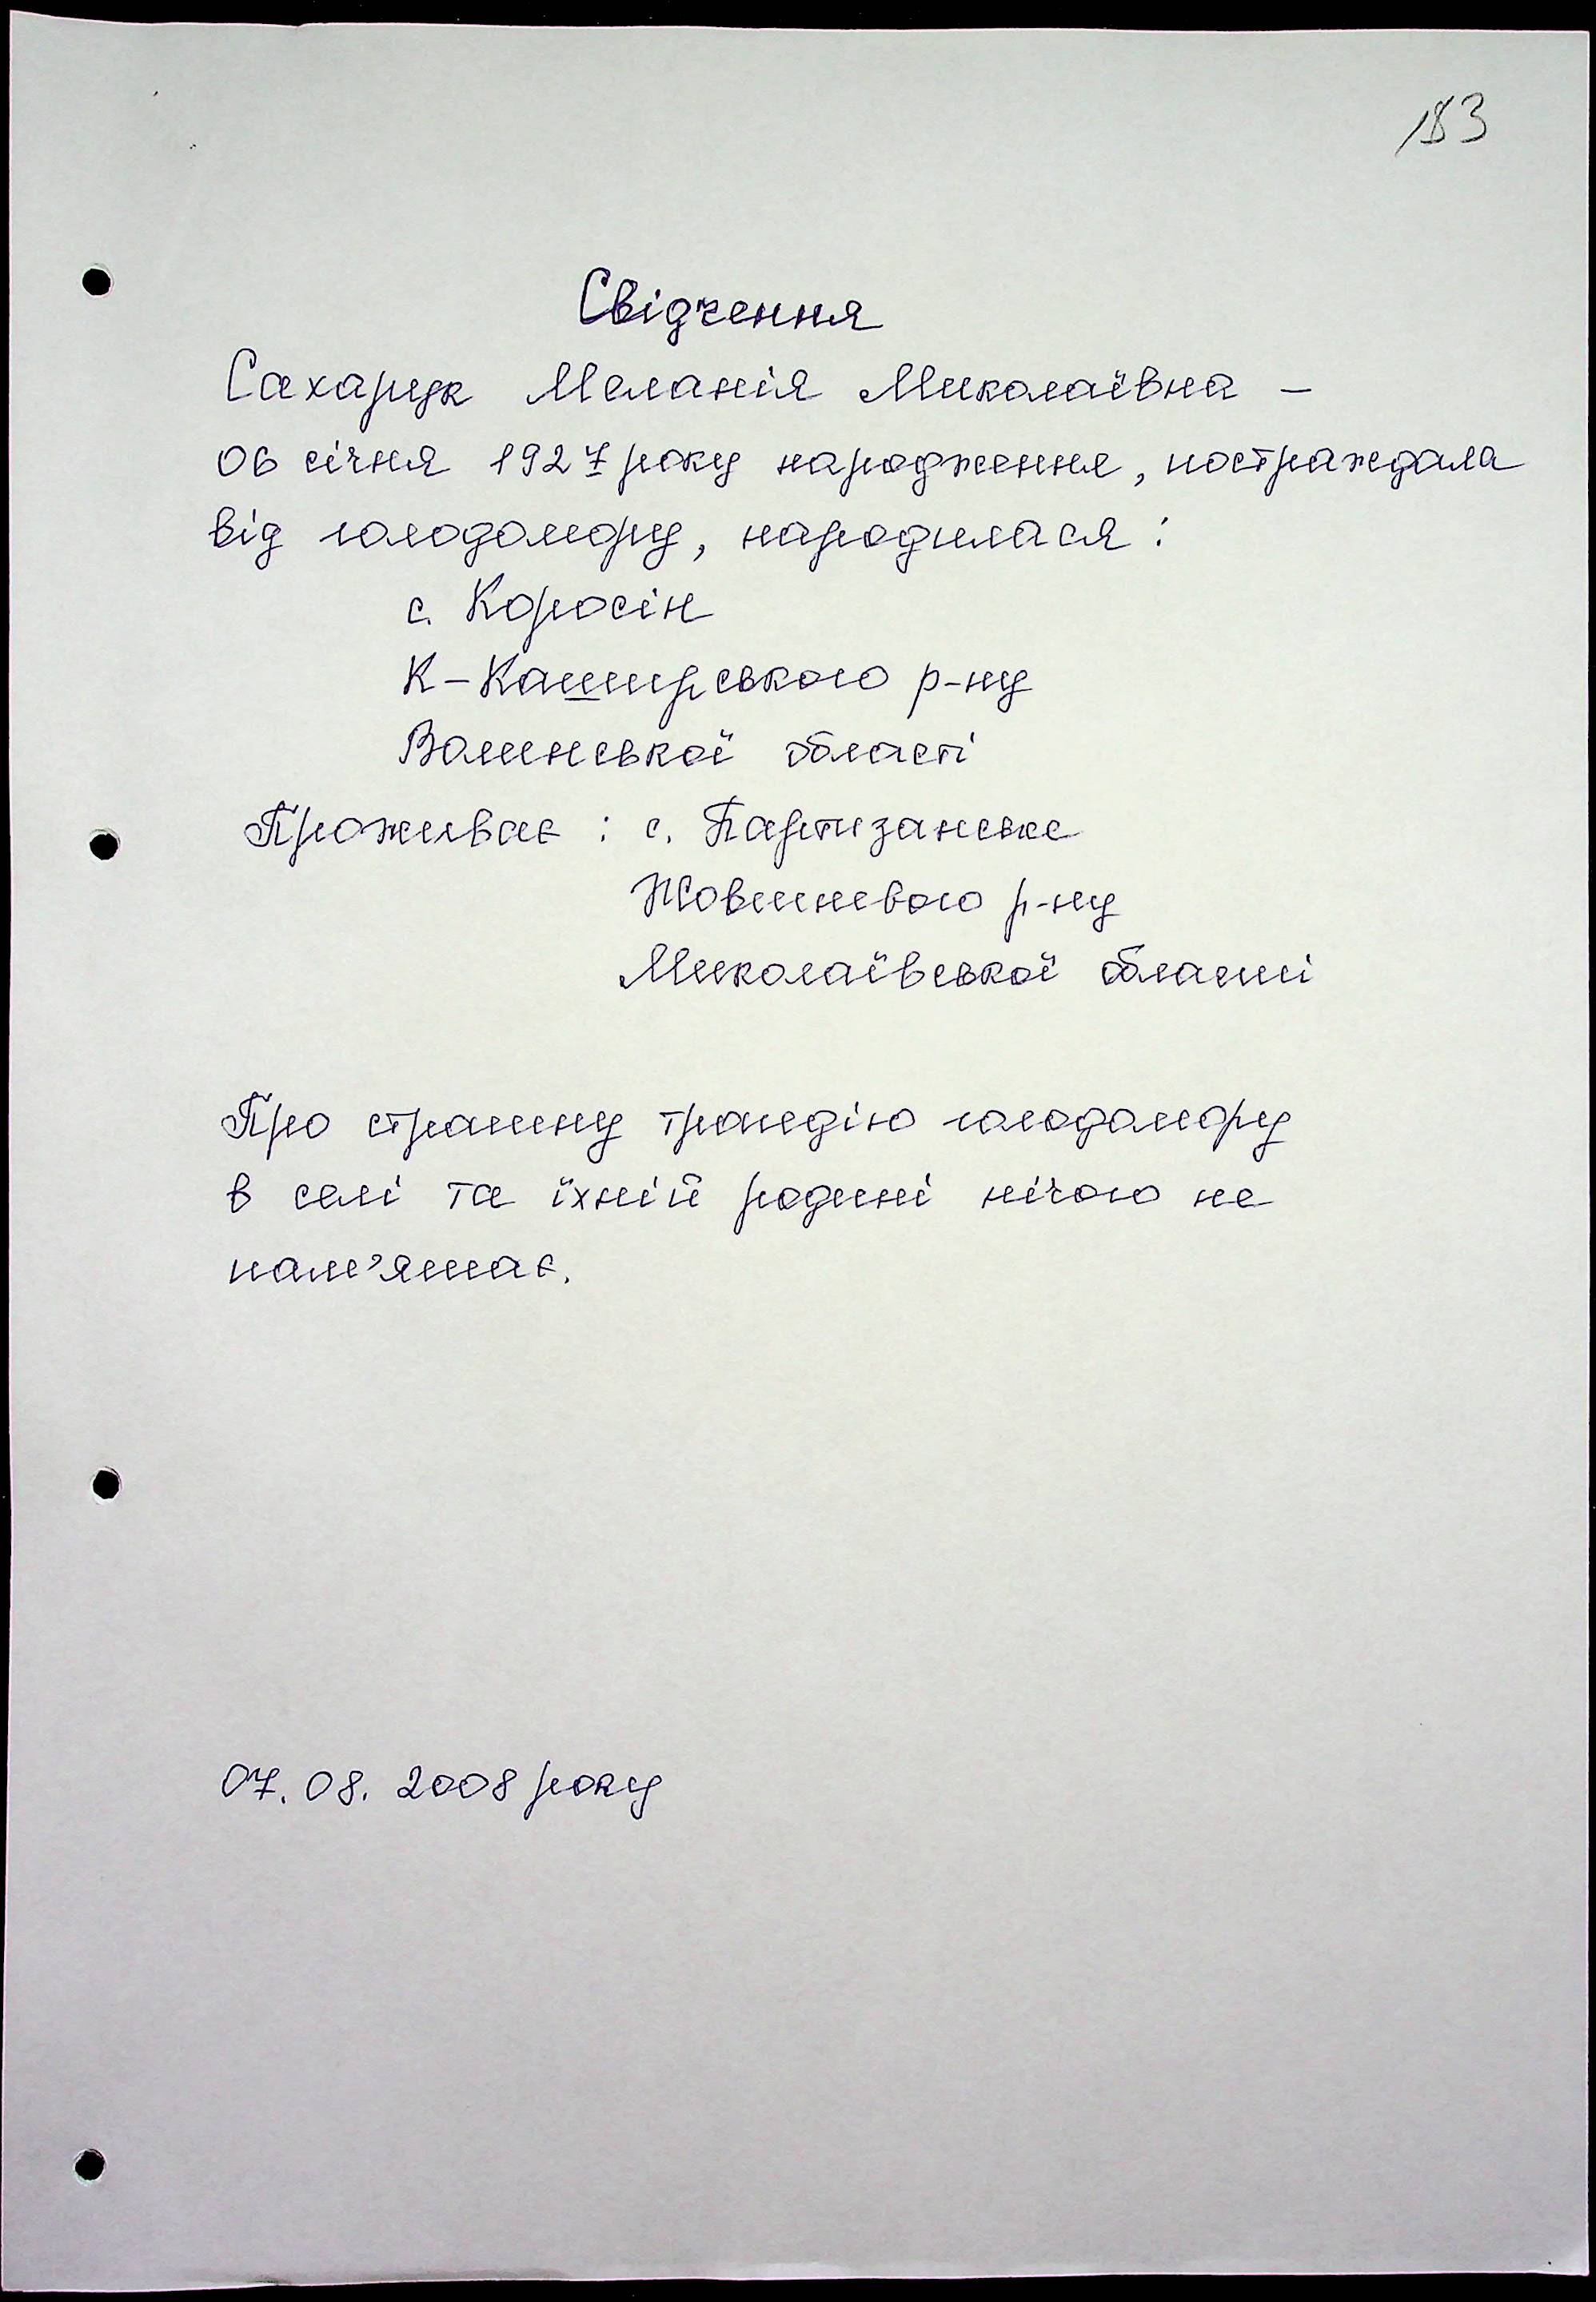 183
Свідчення
Сахарук Меланія Миколаївна –
06 січня 1927 року народження, постраждала
від голодомору, народилася:
с. Коросін
К-Каширського р-ну
Волинської області
Проживає: с. Партизанське
Жовтневого р-ну
Миколаївської області
Про страшну трагедію голодомору
в селі та їхній родині нічого не
пам'ятає.
07.08.2008 року